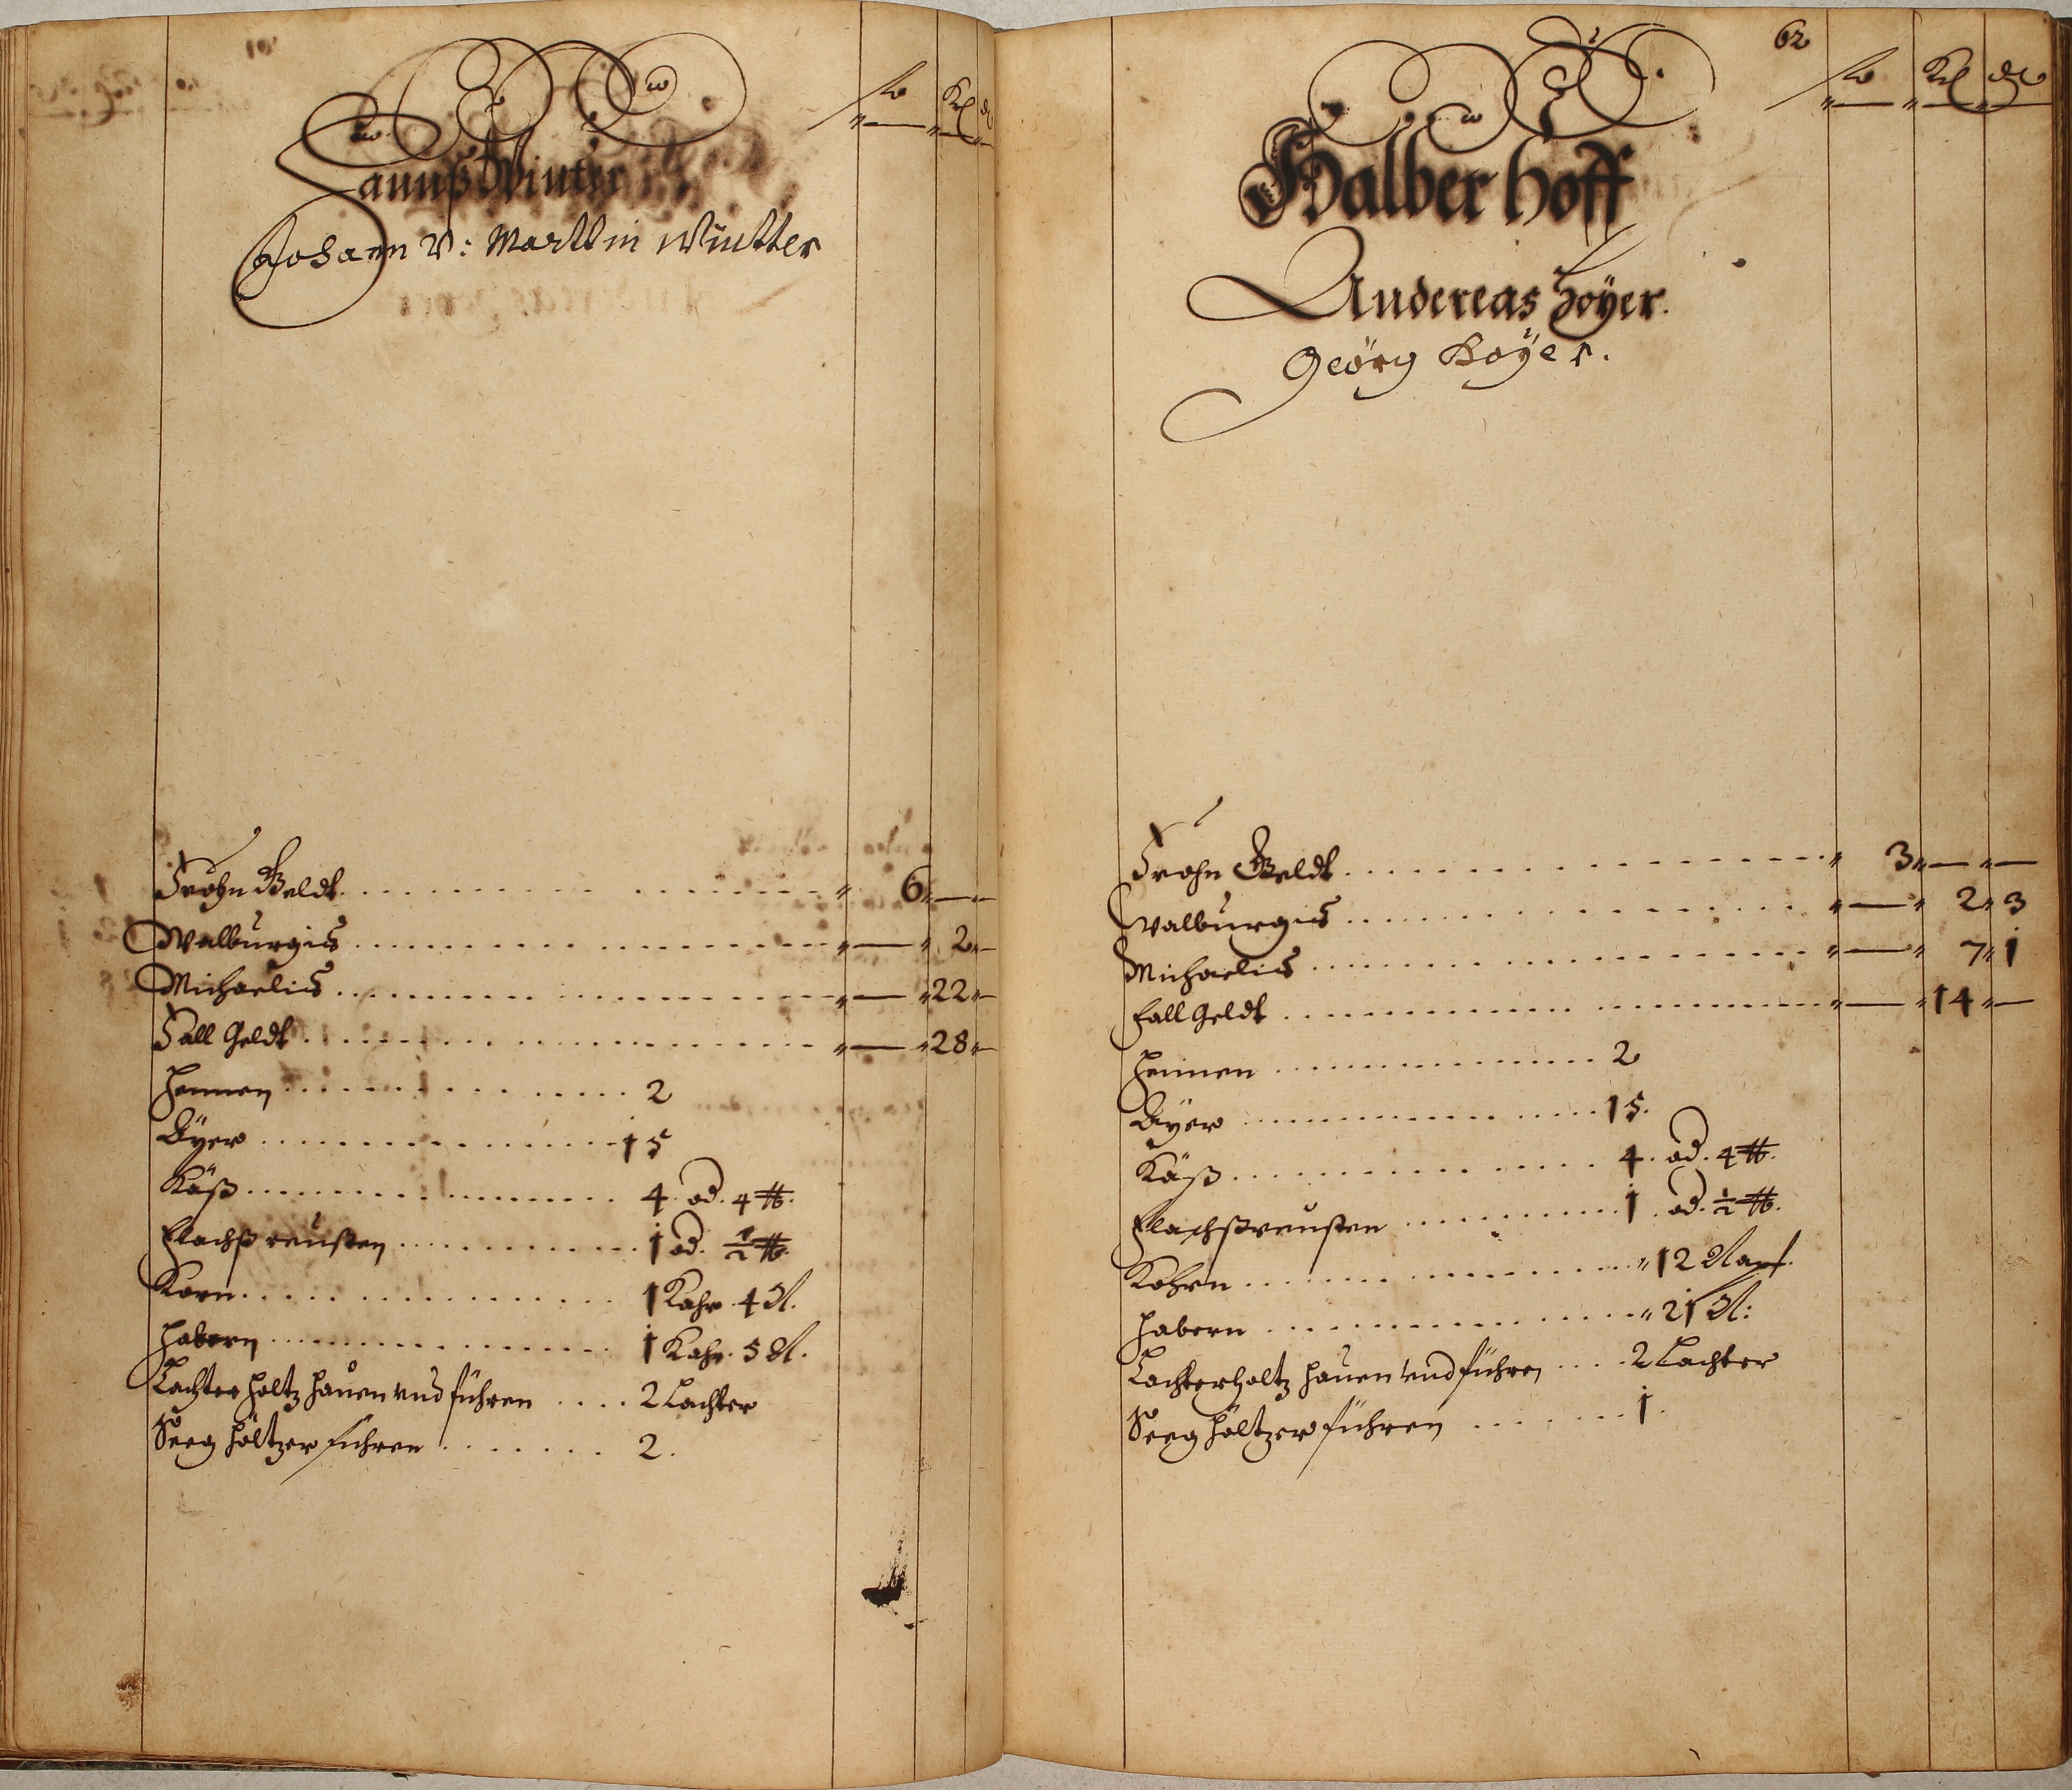 fl Krl dl
Hannß Winter
Johann V: Marttin Wintter
Frohn Geldt 6 — —
Walburgis — 2 —
Michaelis — 22 —
Fall Geldt — 28 —
Hennen 2
Äyer 15
Käß 4 od. 4 ℔.
Flachß reusten 1 od. ½ ℔.
Korn 1 Kahr 4 N.
Habern 1 Kahr. 5 N.
Lachter Holtz hauen vnd führen 2 Lachter
Seeg höltzer führen 2.
62
fl Krl dl
Halber Hoff
Andereas Hoÿer.
Geörg Hoÿer.
Frohn Geldt 3 — —
Walburgis — 2 3
Michaelis — 7 1
Fall Geldt — 14 —
Hennen 2
Äyer 15.
Käß 4. od. 4 ℔.
Flachßreusten 1. od. ½ ℔.
Kohrn 12 Napf.
Habern 21 N:
Lachterholtz hauen vnd führen 2 Lachter
Seeg höltzer führen 1.